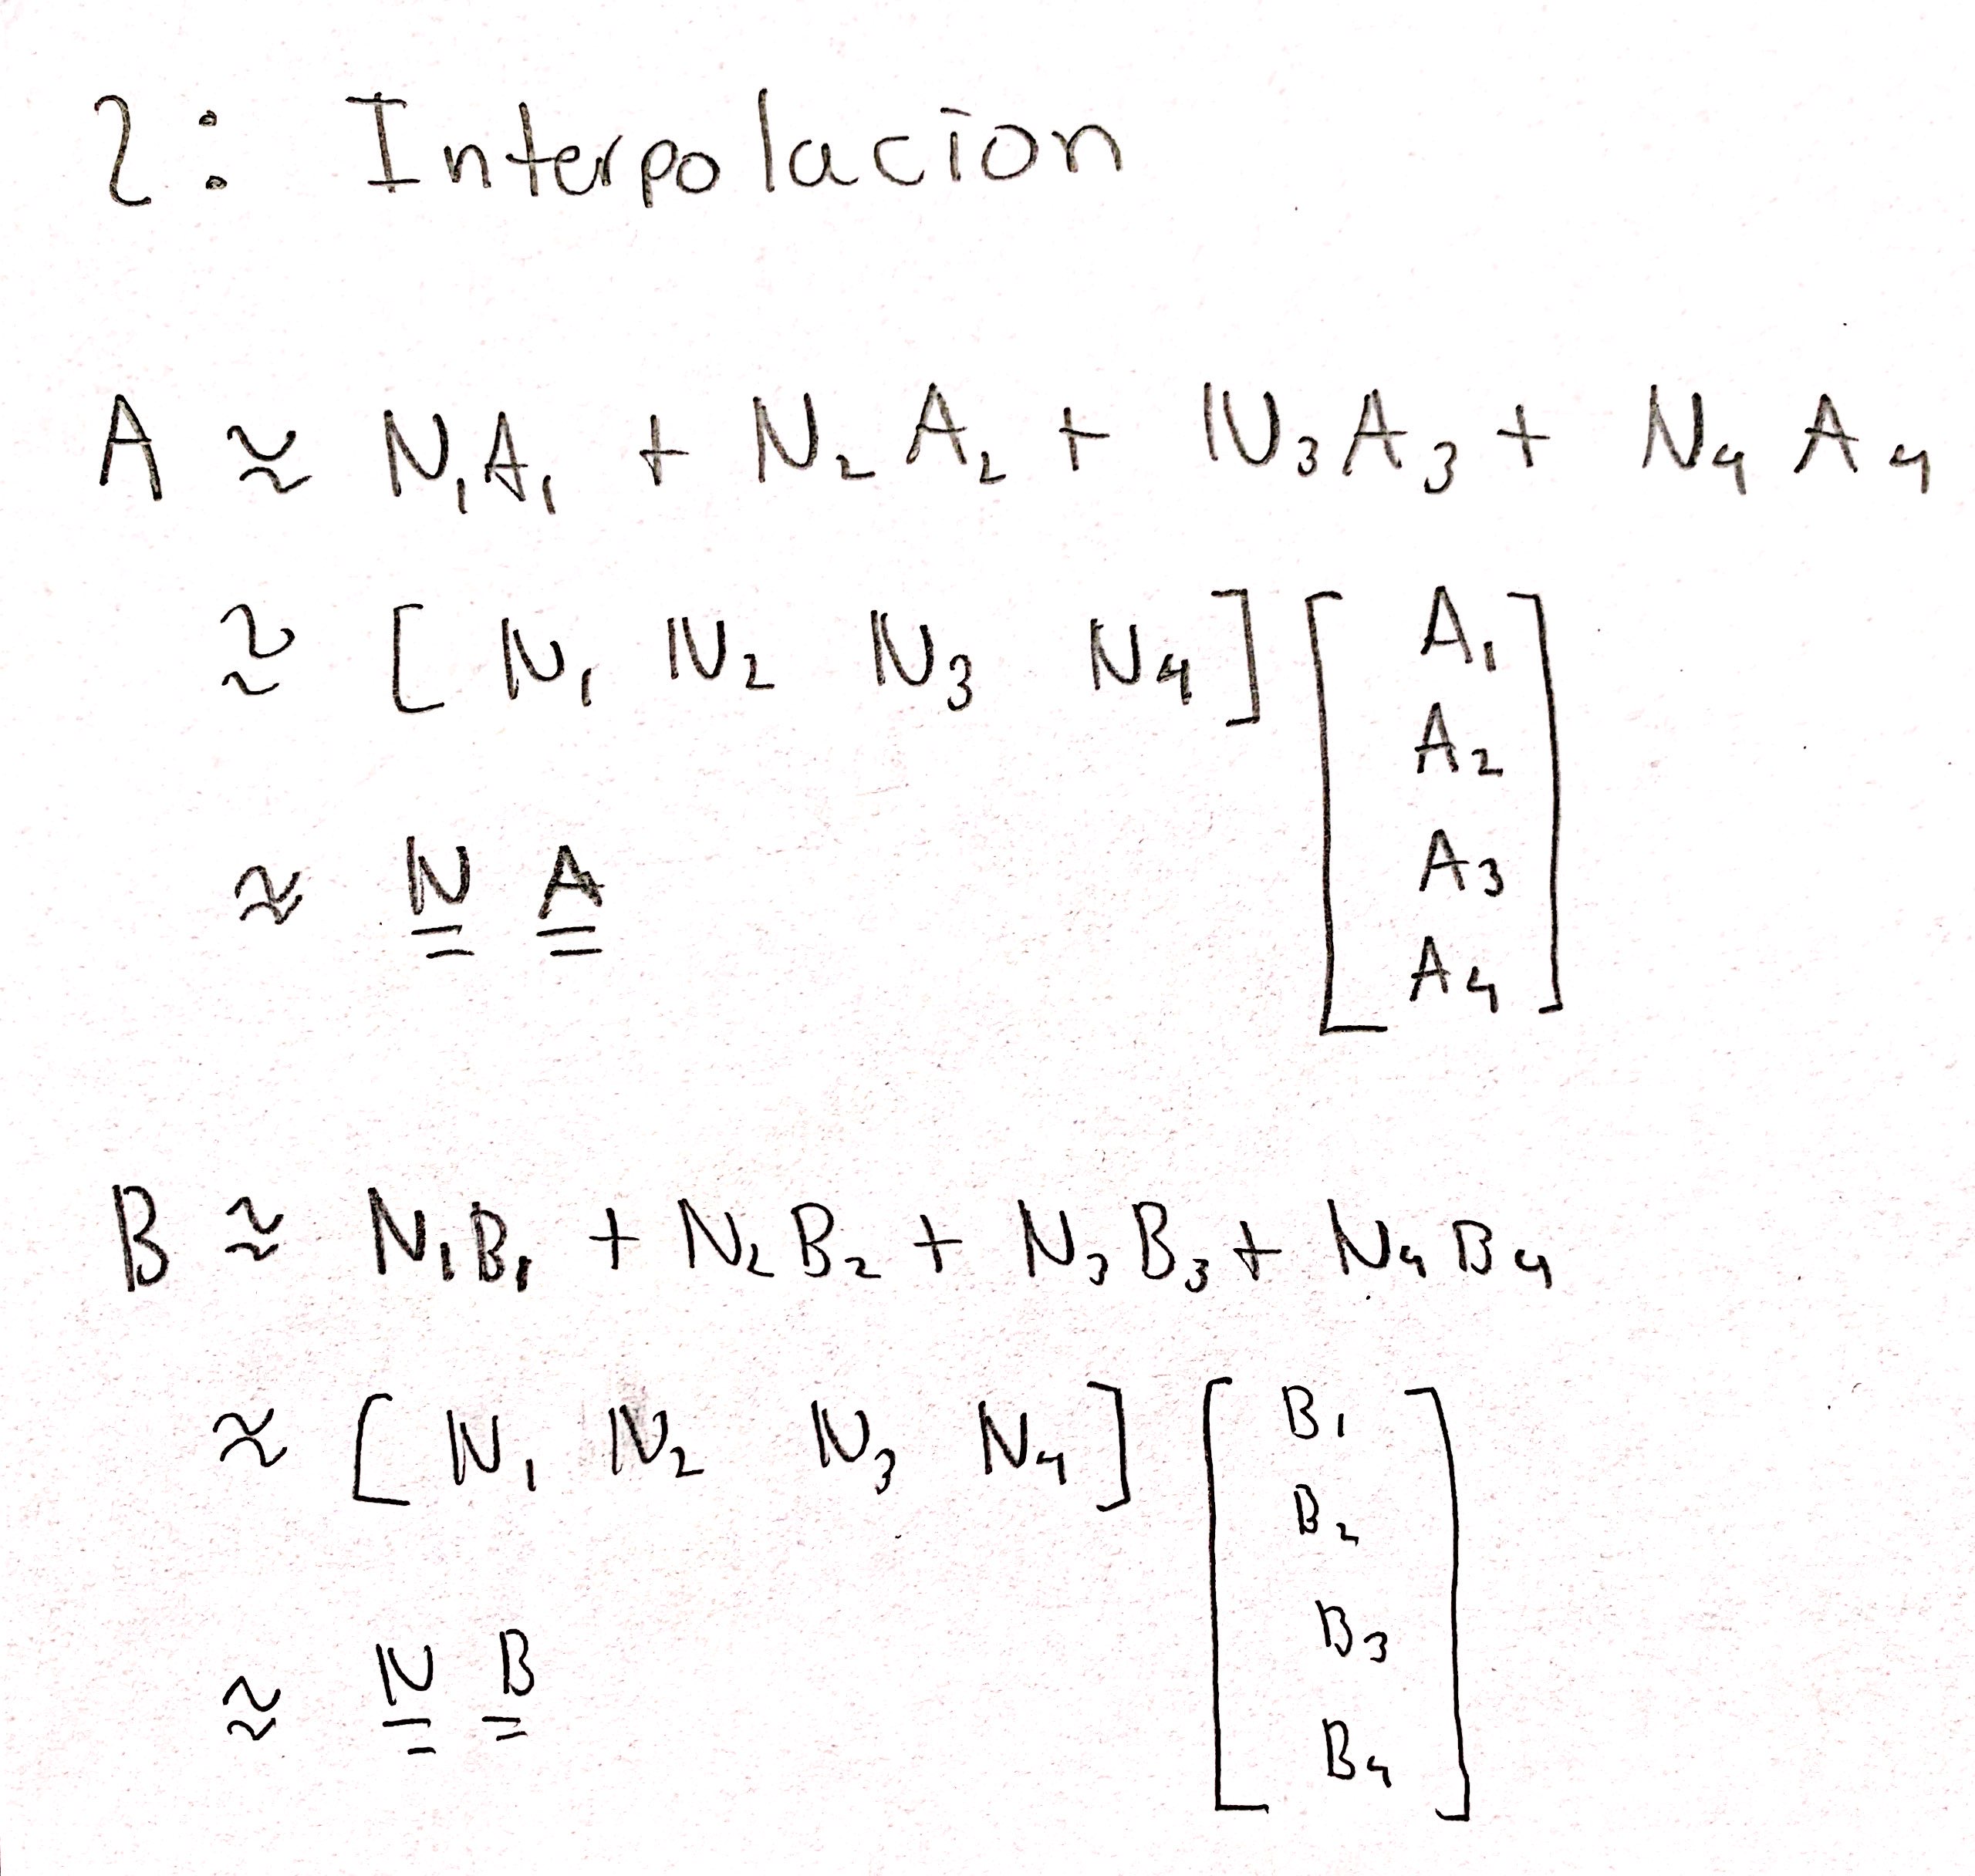 2: Interpolacion
A ≈ N₁A₁ + N₂A₂ + N₃A₃ + N₄A₄
≈ [N₁ N₂ N₃ N₄] [A₁
A₂
A₃
A₄]
≈ N A
B ≈ N₁B₁ + N₂B₂ + N₃B₃ + N₄B₄
≈ [N₁ N₂ N₃ N₄] [B₁
B₂
B₃
B₄]
≈ N B